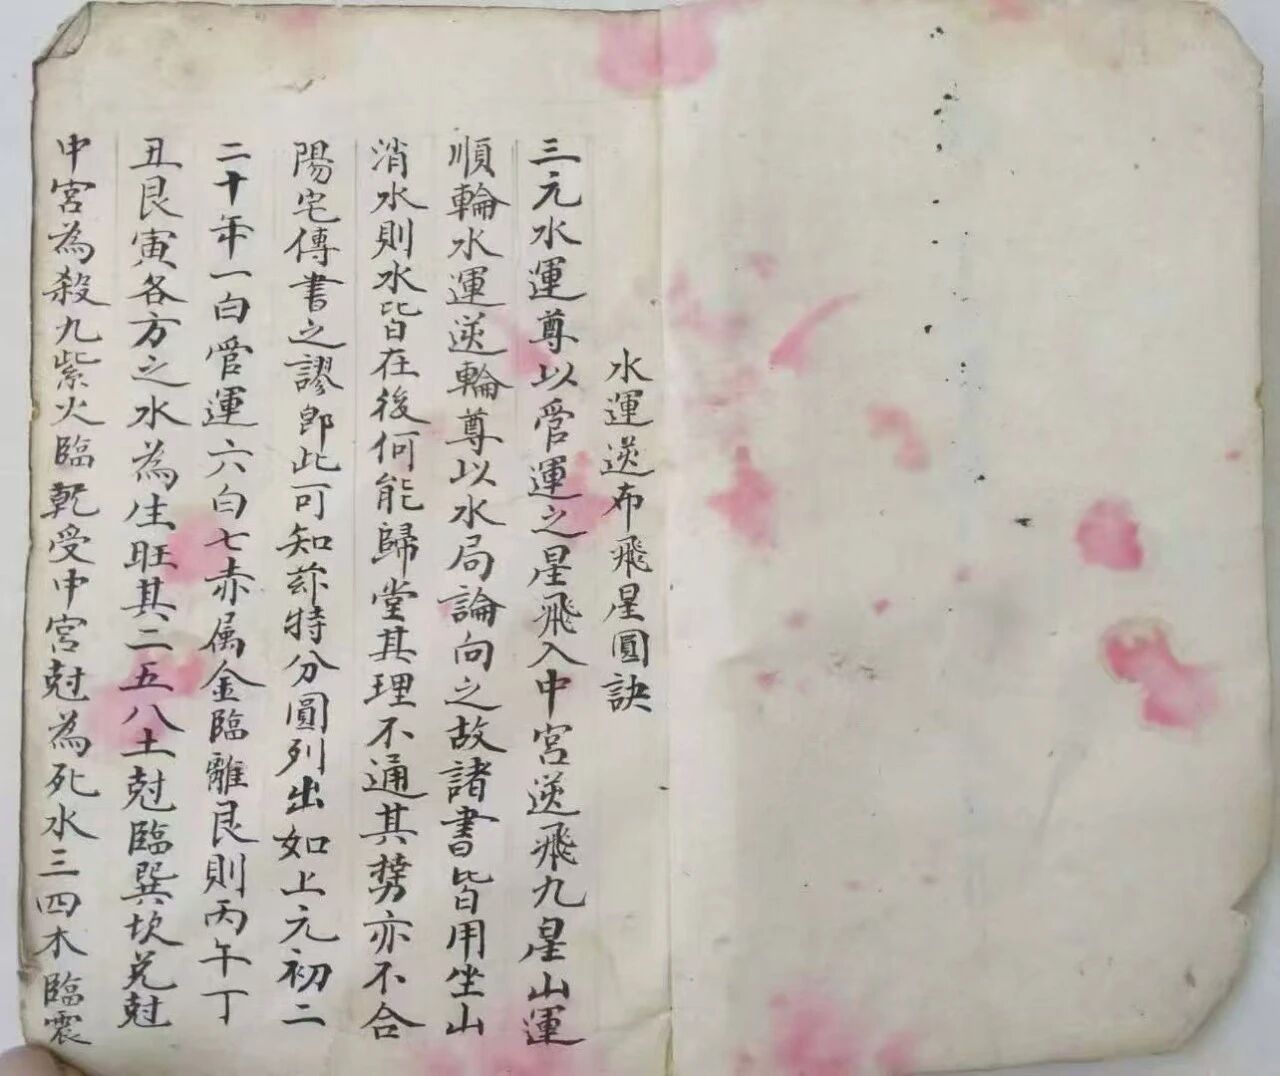 水運逆布飛星圓訣
三元水運尊以管運之星飛入中宮逆飛九星山運
順輪水運逆輪尊以水局論向之故諸書皆用坐山
消水則水皆在後何能歸堂其理不通其勢亦不合
陽宅傳書之謬即此可知茲特分圓列出如上元初二
二十年一白管運六白七赤属金臨離艮則丙午丁
丑艮寅各方之水為生旺其二五八土尅臨巽坎兌尅
中宮為殺九紫火臨乾受中宮尅為死水三四木臨震